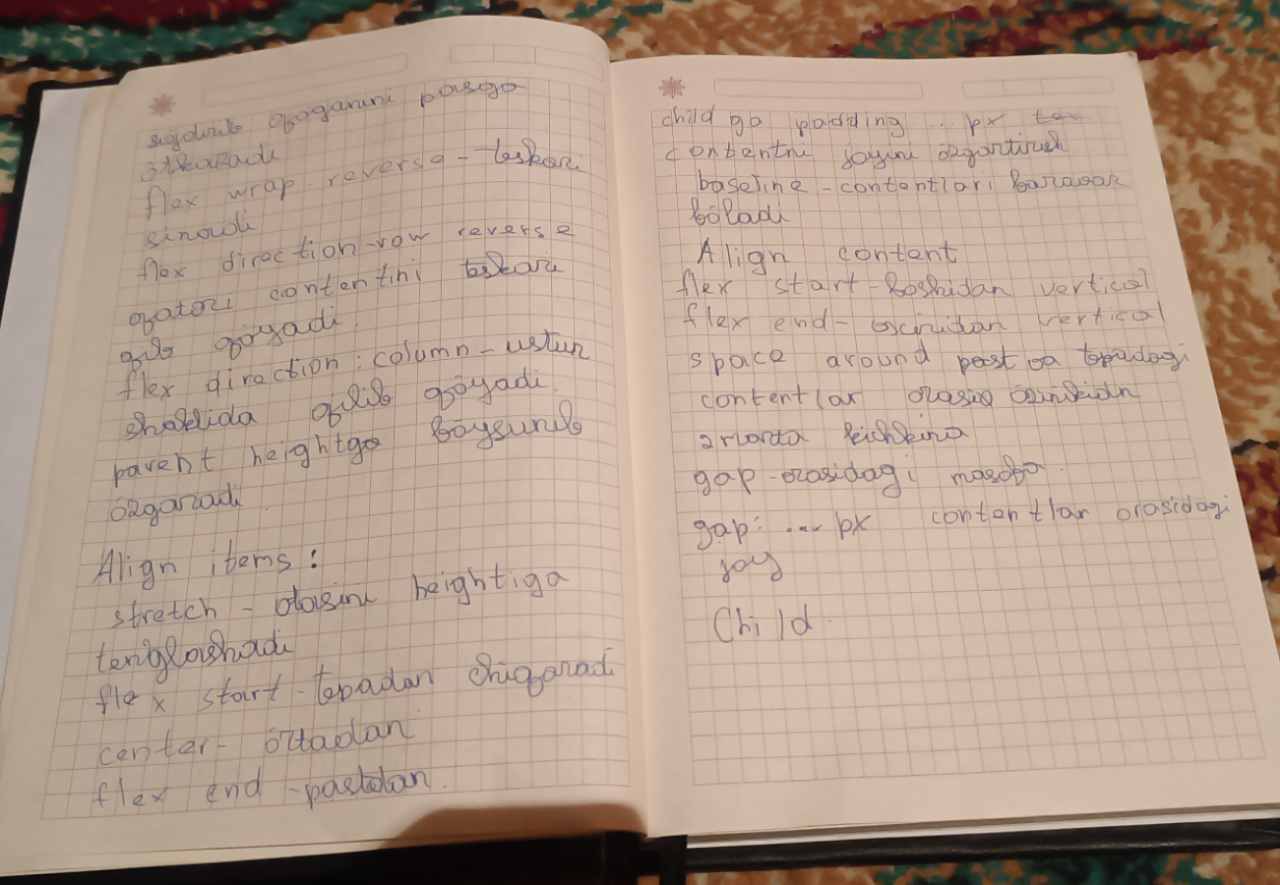 sigdirib qoganini pasga
o'tkazadi
flex wrap reverse - teskari
sinadi
flex direction-row reverse
qatori contentini teskari
qilib qo'yadi.
flex direction: column - ustun
shaklida qilib qo'yadi.
parent heightga bo'ysunib
o'zgaradi.
Align items:
stretch - otasini heightiga
tenglashadi
flex start - tepadan chiqaradi
center - o'rtadan
flex end - pastdan.
child ga padding . px
contentni joyini o'zgartirish
baseline - contentlari baravar
bo'ladi
Align content
flex start - boshidan vertical
flex end - oxiridan vertical
space around past va tepadagi
contentlar orasi
2 marta kichkina
gap - orasidagi masofa.
gap: ... px contentlar orasidagi
joy
Child.